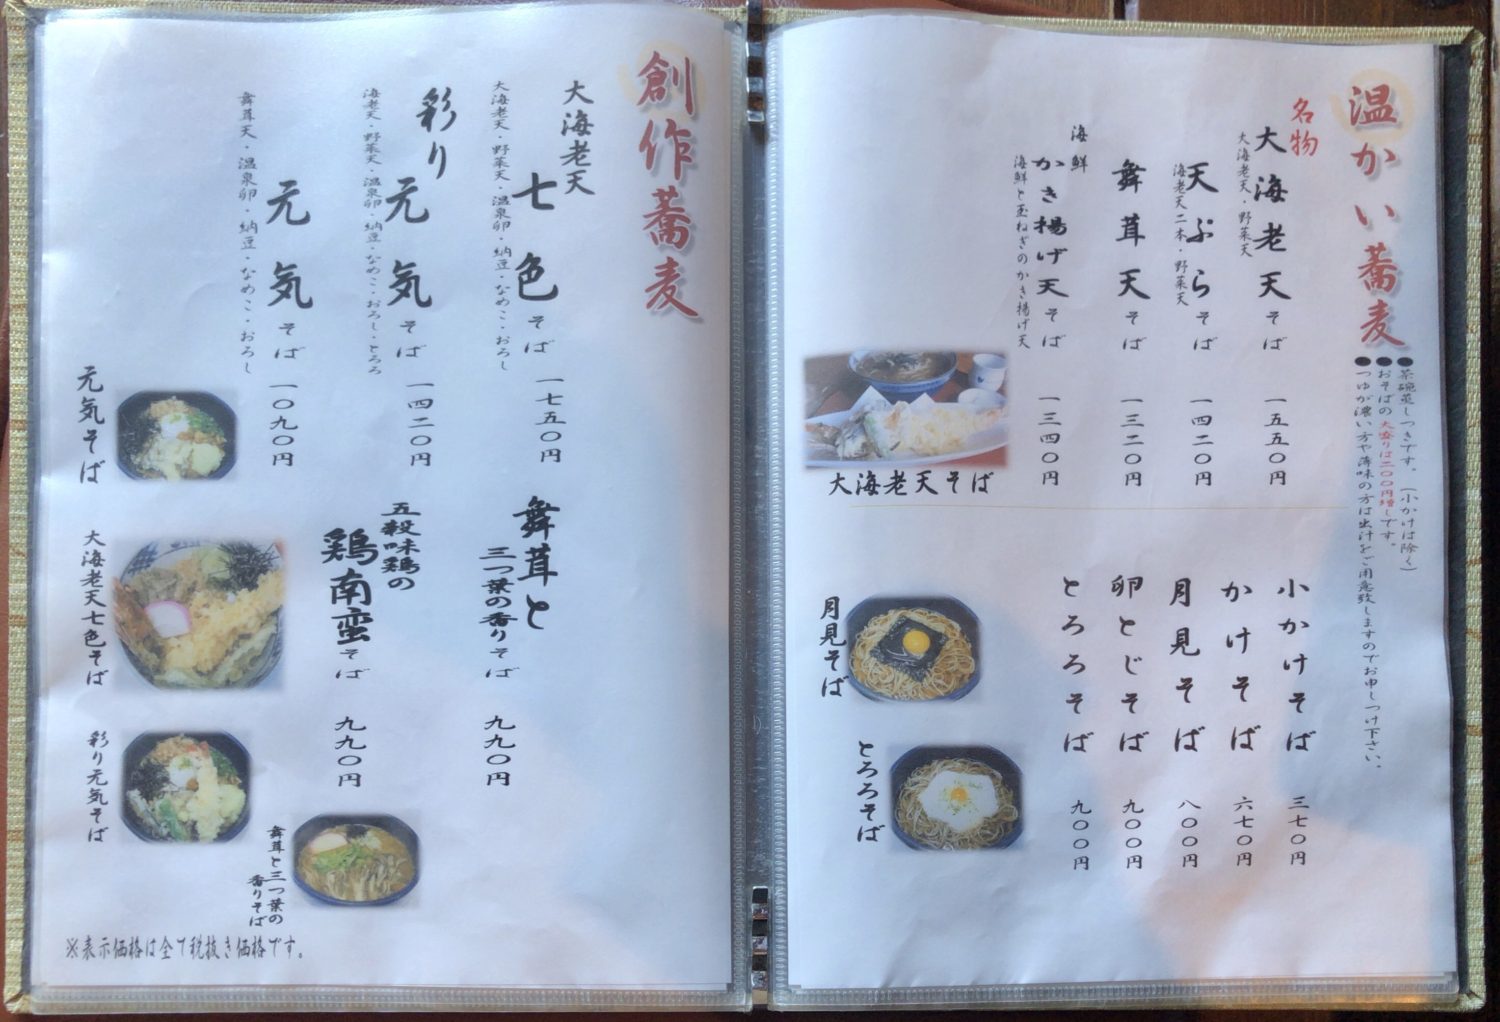 温かい蕎麦
●茶碗蒸しつきです。(小かけは除く)
●おそばの大盛りは二〇〇円増しです。
●つゆが濃い方や薄味の方は出汁をご用意致しますのでお申しつけ下さい。
名物
大海老天そば 一五五〇円
大海老天・野菜天
天ぷらそば 一四二〇円
海老天二本・野菜天
舞茸天そば 一三二〇円
海鮮
かき揚げ天そば 一三四〇円
海鮮と玉ねぎのかき揚げ天
大海老天そば
小かけそば 三七〇円
かけそば 六七〇円
月見そば 八〇〇円
卵とじそば 九〇〇円
とろろそば 九〇〇円
月見そば
とろろそば
創作蕎麦
大海老天
七色そば 一七五〇円
大海老天・野菜天・温泉卵・納豆・なめこ・おろし
彩り
元気そば 一四二〇円
海老天・野菜天・温泉卵・納豆・なめこ・おろし・とろろ
元気そば 一〇九〇円
舞茸天・温泉卵・納豆・なめこ・おろし
舞茸と
三つ葉の香りそば 九九〇円
五穀味鶏の
鶏南蛮そば 九九〇円
元気そば
大海老天七色そば
彩り元気そば
舞茸と三つ葉の
香りそば
※表示価格は全て税抜き価格です。